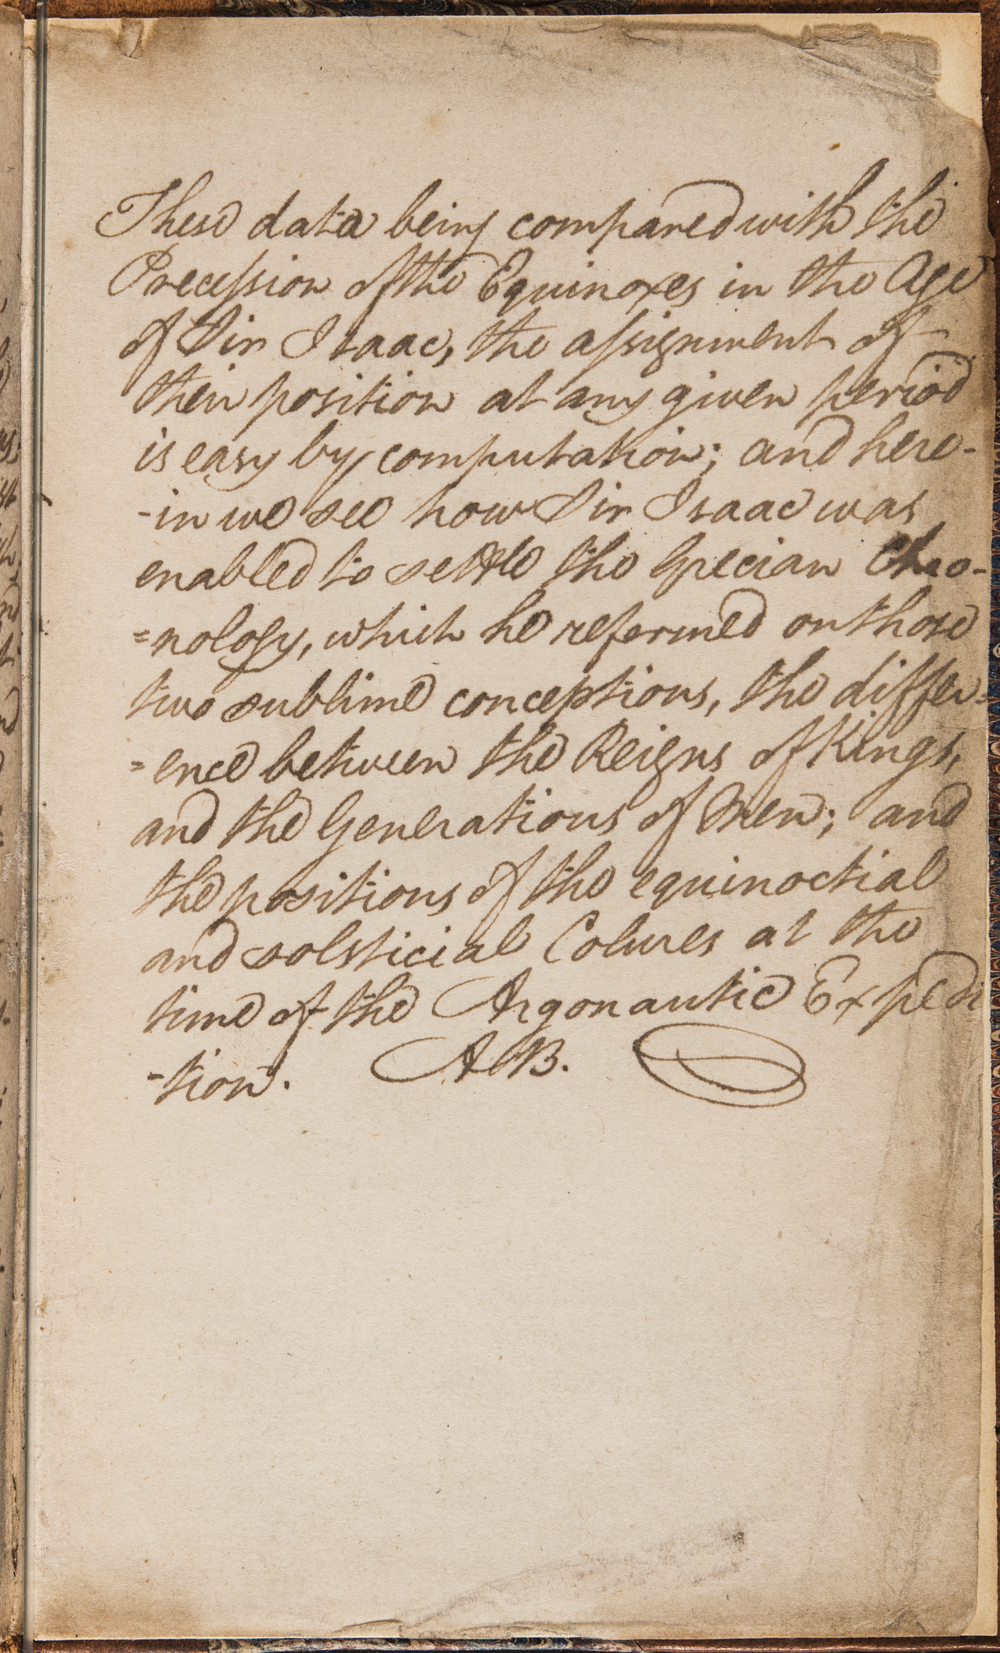 These data being compared with the
Precession of the Equinoxes in the Age
of Sir Isaac, the assignment of
their position at any given period
is easy by computation; and here-
-in we see how Sir Isaac was
enabled to settle the Grecian Chro-
=nology, which he reformed on those
two sublime conceptions, the differ-
=ence between the Reigns of Kings,
and the Generations of Men; and
the positions of the equinoctial
and solsticial Colures at the
time of the Argonautic Expedi
-tion. AB.